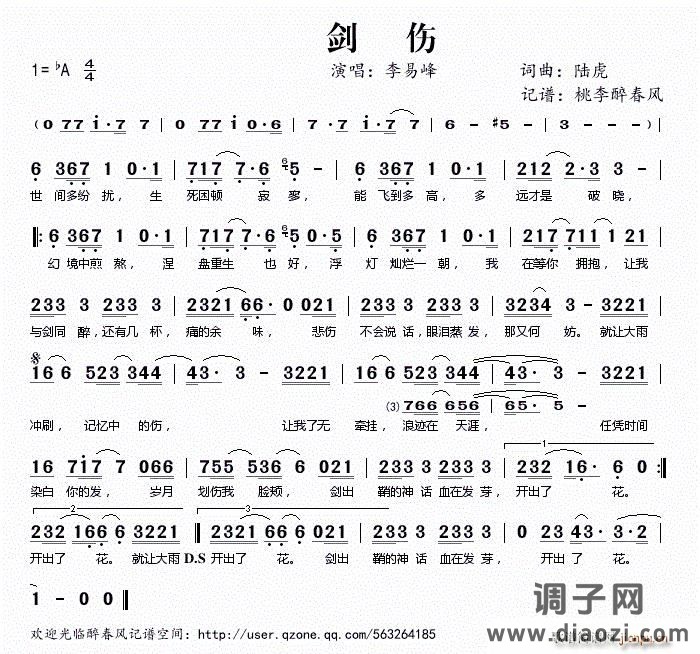 剑 伤
1=♭A 4/4 演唱：李易峰 词曲：陆虎
记谱：桃李醉春风
(0 77 i·7 7 | 0 77 i 0·6 | 7 7i·7 7 | 6 - #5 - | 3 - - - )|
6 367 1 0·1 | 717 7·6 6 5 - | 6 367 1 0·1 | 212 2·3 3 |
世 间多纷 扰， 生 死困顿 寂寥， 能 飞到多 高， 多 远才是 破晓，
‖: 6 367 1 0·1 | 717 7·6 6 5 0·5 | 6 367 1 0·1 | 217 711 1 21 |
幻 境中煎 熬， 涅 盘重生 也 好， 浮 灯 灿烂一 朝， 我 在等你 拥抱， 让我
233 3 233 3 | 2321 66·0 021 | 233 3 233 3 | 3234 3 - 3221 |
与剑同 醉，还有几 杯， 痛的余 味， 悲伤 不会说 话，眼泪蒸 发， 那又何 妨。 就让大雨
16 6 523 344 | 43· 3 - 3221 | 16 6 523 344 | 43· 3 - 3221 |
(3) 766 656 | 65· 5 -
冲刷， 记忆中 的伤， 让我了无 牵挂， 浪迹在 天涯， 任凭时间
16 7i7 7 066 | 755 536 6 021 | 233 3 233 3 | 1 232 16· 6 0 :‖
染白 你的发， 岁月 划伤我 脸颊， 剑出 鞘的神 话 血在发 芽， 开出了 花。
2 232 166 6 3221 ‖ 2321 66· 6 021 | 233 3 233 3 | 0 23 43· 3·2 |
开出了 花。就让大雨 D.S 开出了 花。 剑出 鞘的神 话 血在发 芽， 开出 了 花。
1 - 0 0 ‖
欢迎光临醉春风记谱空间：http://user.qzone.qq.com/563264185
调子网
www.diaozi.com